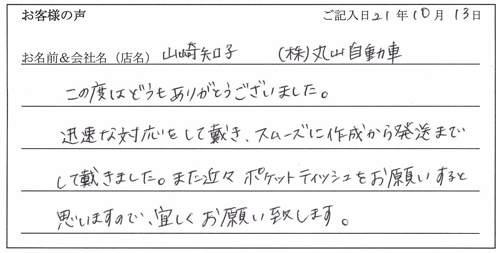 お客様の声 ご記入日21年10月13日
お名前&会社名（店名） 山崎知子 (株)丸山自動車
この度はどうもありがとうございました。
迅速な対応をして戴き、スムーズに作成から発送まで
して戴きました。また近々ポケットティッシュをお願いすると
思いますので、宜しくお願い致します。